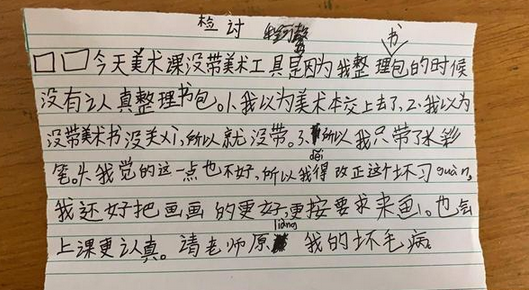 检讨
书
□□今天美术课没带美术工具是因为我整理包的时候
没有认真整理书包。1、我以为美术本交上去了，2、我以为
没带美术书没关义，所以就没带。3、所以我只带了水彩
笔。4、我觉的这一点也不好，所以我得 děi 改正这个坏习guàn，
我还好把画画的更好，更按要求来画。也会
上课更认真。请老师原 liàng 我的坏毛病